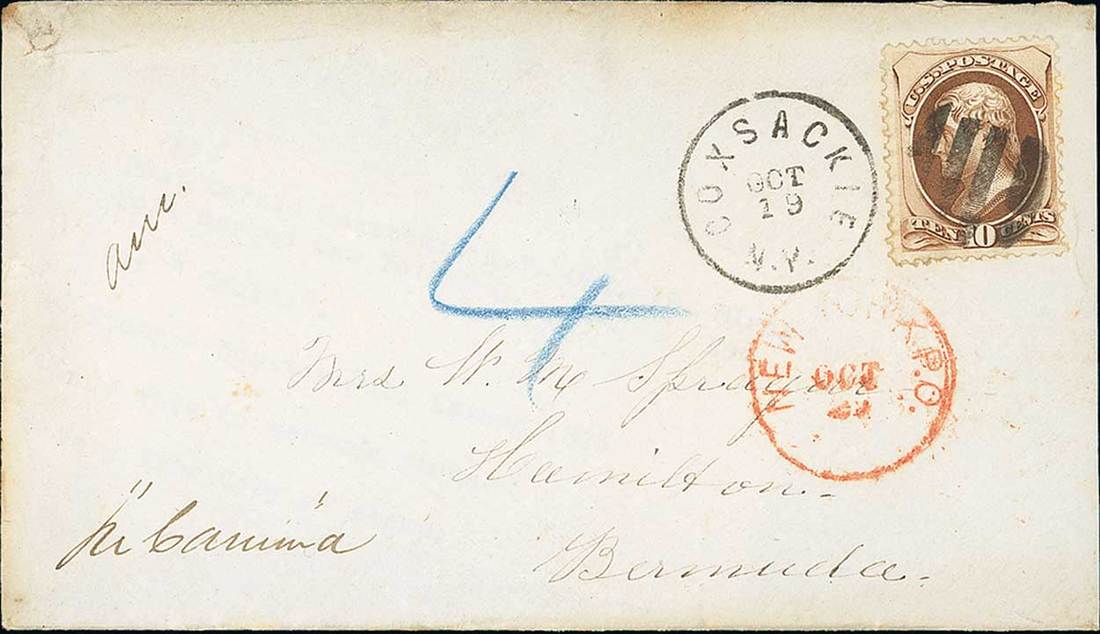 U.S. POSTAGE
TEN 10 CENTS
COXSACKIE
OCT
19
N.Y.
NEW YORK P.O.
OCT
4
Mrs W. M. Sprague
Hamilton
Bermuda.
"pr Canima"